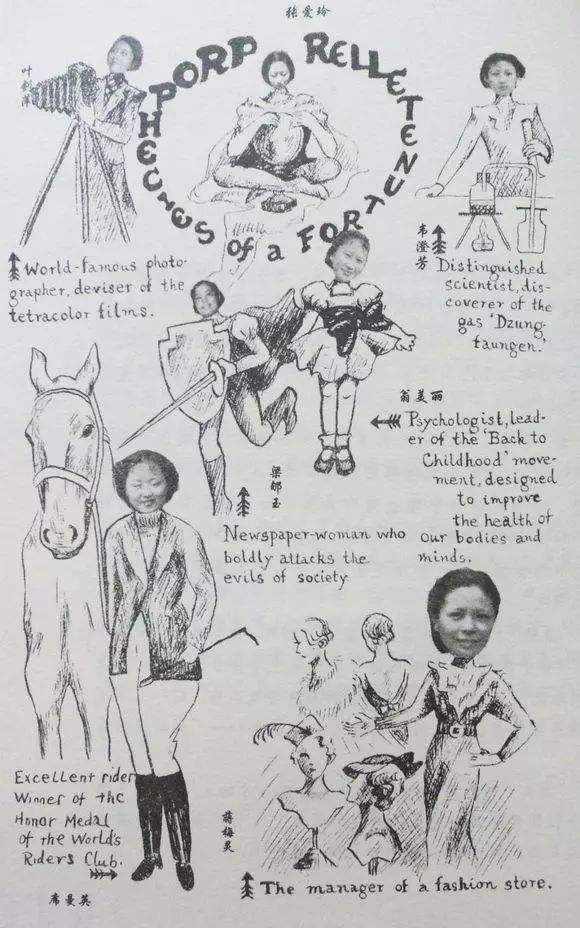 张爱玲
PROPHECIES of a FORTUNETELLER
叶
World-famous photo-
grapher, deviser of the
tetracolor films.
韦澄芳
Distinguished
scientist, dis-
coverer of the
gas 'Dzung-
taungen.'
翁美丽
Psychologist, lead-
er of the 'Back to
Childhood' move-
ment, designed
to improve
the health of
our bodies and
minds.
梁 玉
Newspaper-woman who
boldly attacks the
evils of society.
Excellent rider
Winner of the
Honor Medal
of the World's
Riders Club.
席曼英
蒋梅
The manager of a fashion store.